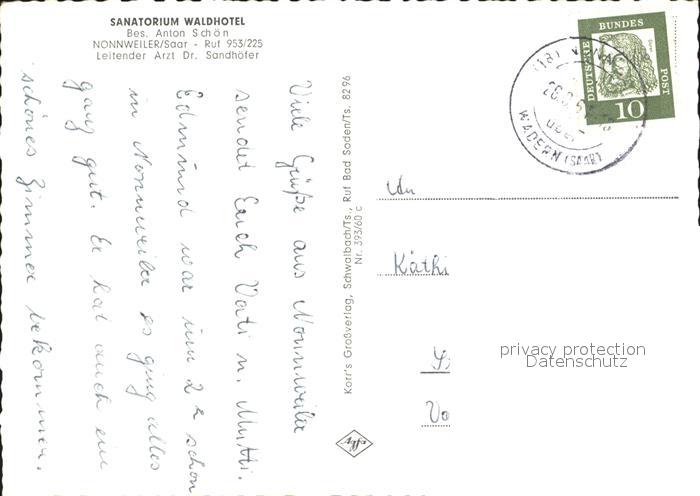 SANATORIUM WALDHOTEL
Bes. Anton Schön
NONNWEILER/Saar - Ruf 953/225
Leitender Arzt Dr. Sandhöfer
Viele Grüße aus Nonnweiler
sendet Euch Vati u. Mutti.
Edmund war um 2 h schon
in Nonnweiler es ging alles
ganz gut. Er hat auch ein
schönes Zimmer bekommen.
Korr's Großverlag, Schwalbach/Ts., Ruf Bad Soden/Ts. 8296
Nr. 393/60 c
agfa
DEUTSCHE BUNDES POST
10
über
WADERN (SAAR)
An
Käthi
privacy protection
Datenschutz